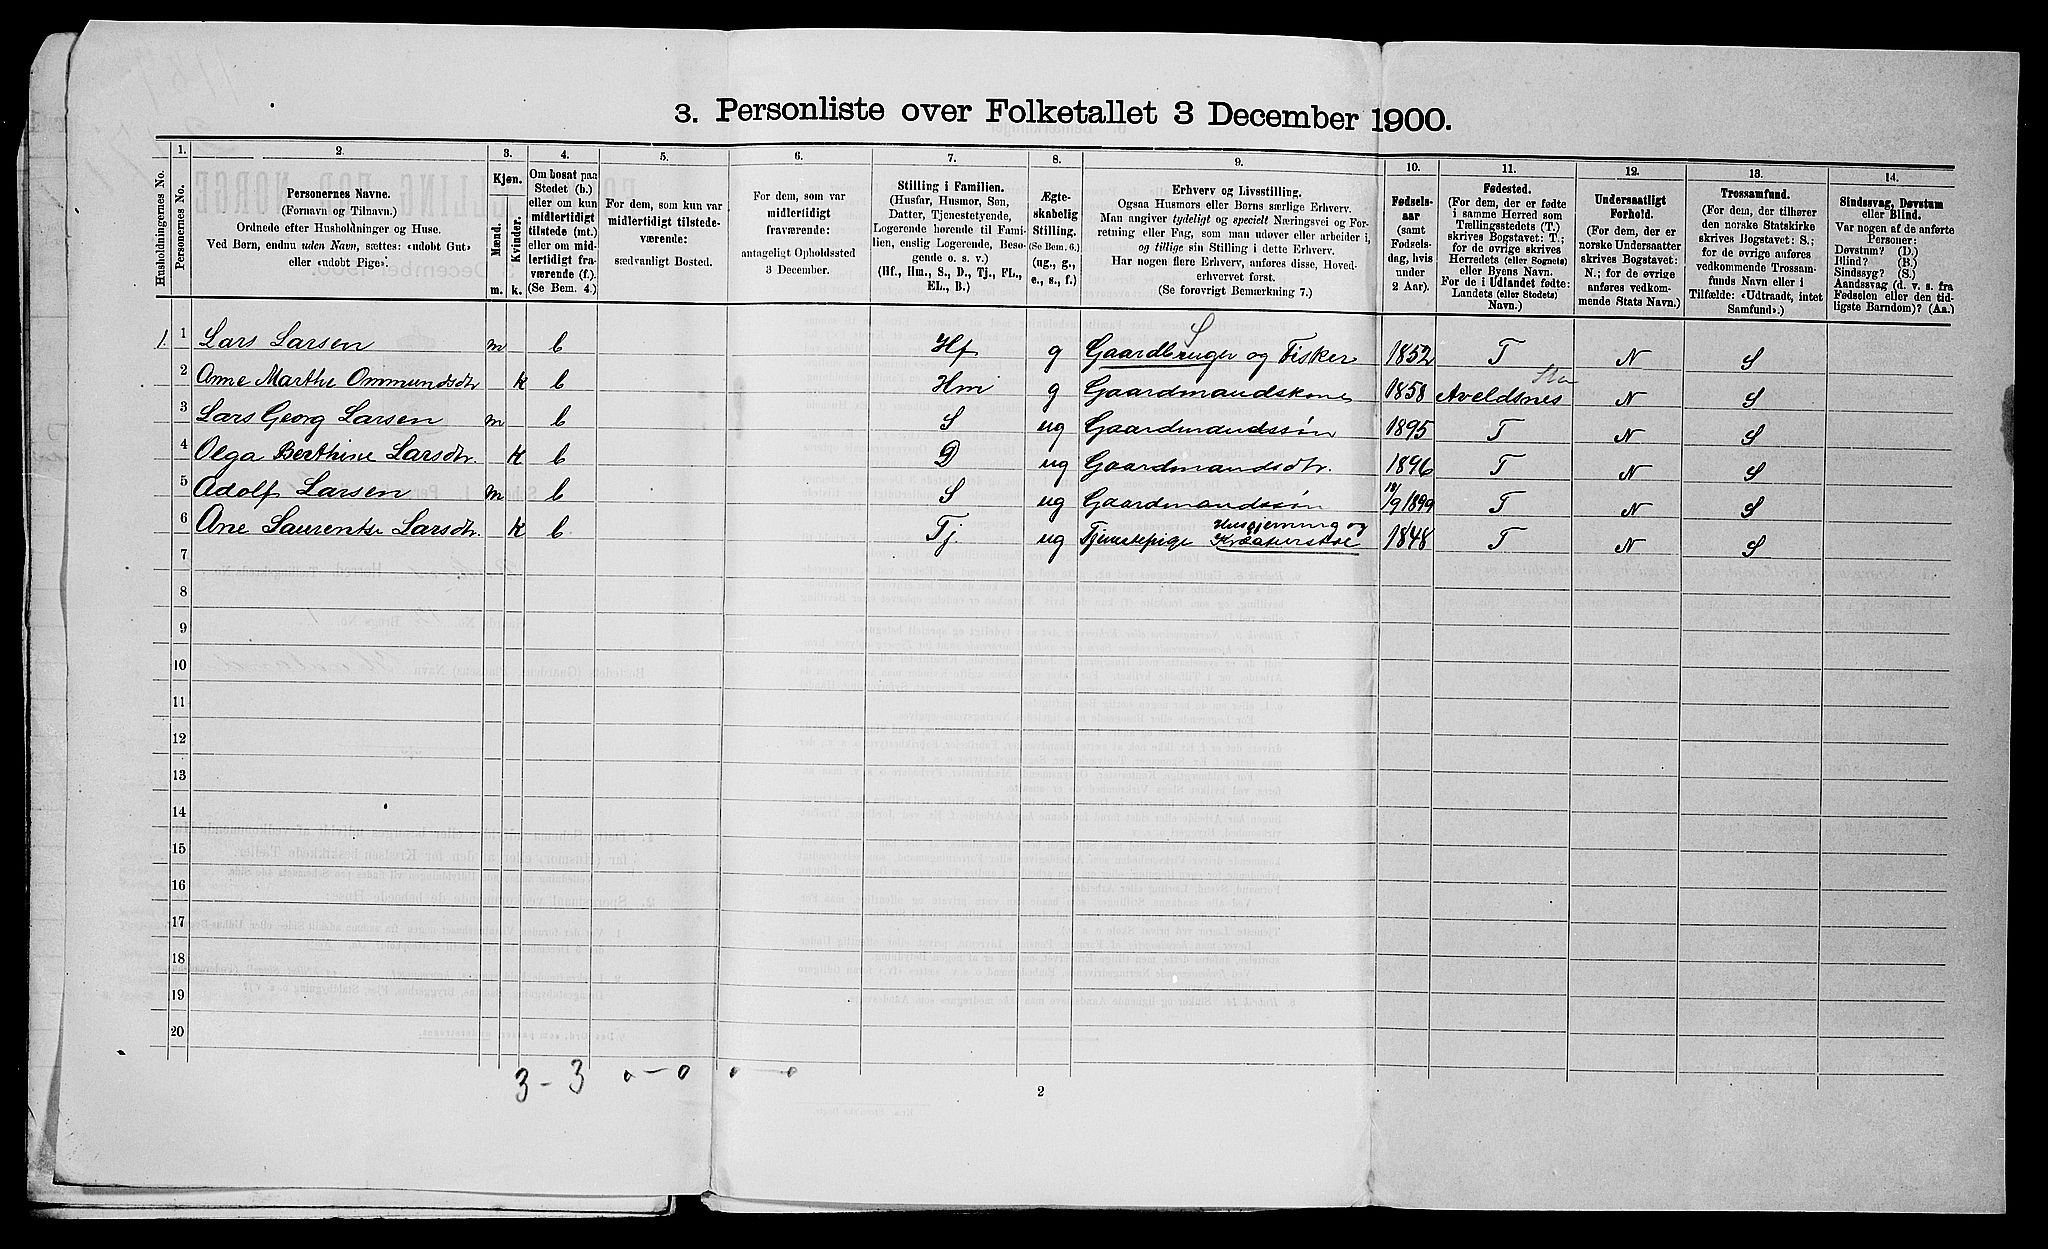 3. Personliste over Folketallet 3 December 1900.
Husholdningernes No.
Personernes No.
1.
2.
Personernes Navne.
(Fornavn og Tilnavn.)
Ordnede efter Husholdninger og Huse.
Ved Børn, endnu uden Navn, sættes: «udøbt Gut»
eller «udøbt Pige».
3.
Kjøn.
Mænd.
Kvinder.
m.
k.
4.
Om bosat paa
Stedet (b.)
eller om kun
midlertidigt
tilstede (mt.)
eller om mid-
lertidigt fra-
værende (f.).
(Se Bem. 4.)
5.
For dem, som kun var
midlertidigt tilstede-
værende:
sædvanligt Bosted.
6.
For dem, som var
midlertidigt
fraværende:
antageligt Opholdssted
3 December.
7.
Stilling i Familien.
(Husfar, Husmor, Søn,
Datter, Tjenestetyende,
Logerende hørende til Fami-
lien, enslig Logerende, Besø-
gende o. s. v.)
(Hf., Hm., S., D., Tj., FL.,
EL., B.)
8.
Ægte-
skabelig
Stilling.
(Se Bem. 6.)
(ug., g.,
e., s., f.)
9.
Erhverv og Livsstilling.
Ogsaa Husmors eller Børns særlige Erhverv.
Man angiver tydeligt og specielt Næringsvei og For-
retning eller Fag, som man udøver eller arbeider i,
og tillige sin Stilling i dette Erhverv.
Har nogen flere Erhverv, anføres disse, Hoved-
erhvervet først.
(Se forøvrigt Bemærkning 7.)
10.
Fødsels-
aar
(samt
Fødsels-
dag, hvis
under
2 Aar).
11.
Fødested.
(For dem, der er fødte
i samme Herred som
Tællingsstedets (T.)
skrives Bogstavet: T.;
for de øvrige skrives
Herredets (eller Sognets)
eller Byens Navn.
For de i Udlandet fødte:
Landets (eller Stedets)
Navn.)
12.
Undersaatligt
Forhold.
(For dem, der er
norske Undersaatter
skrives Bogstavet:
N.; for de øvrige
anføres vedkom-
mende Stats Navn.)
13.
Trossamfund.
(For dem, der tilhører
den norske Statskirke
skrives Bogstavet: S.;
for de øvrige anføres
vedkommende Trossam-
funds Navn eller i
Tilfælde: «Udtraadt, intet
Samfund».)
14.
Sindssvag, Døvstum
eller Blind.
Var nogen af de anførte
Personer:
Døvstum? (D.)
Blind? (B.)
Sindssyg? (S.)
Aandssvag (d. v. s. fra
Fødselen eller den tid-
ligste Barndom)? (Aa.)
S
1. 1 Lars Larsen m b Hf g Gaardbruger og Fisker 1852 T N S
2 Ane Marthe Ommundsdtr k b Hm g Gaardmandskone 1858 Aveldsnes Sta N S
3 Lars Georg Larsen m b S ug Gaardmandssøn 1895 T N S
4 Olga Berthine Larsdtr. k b D ug Gaardmandsdtr. 1896 T N S
5 Adolf Larsen m b S ug Gaardmandssøn 18/9 1899 T N S
6 Ane Laurentse Larsdtr. k b Tj. ug Tjenestepige Husgjerning og Kreaturstel 1848 T N S
7
8
9
10
11
12
13
14
15
16
17
18
19
20
3 - 3 0 - 0 0 - 0
2